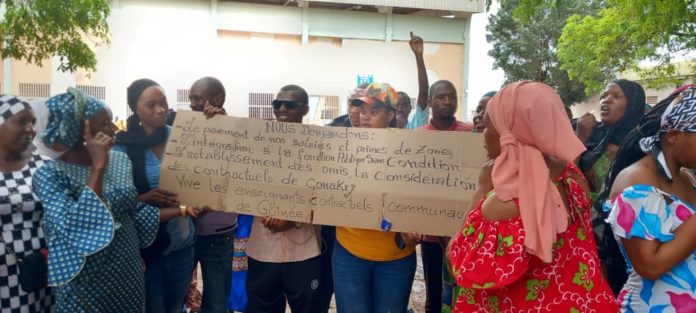 NOUS Demandons:
-Le paiement de nos salaires et primes de Zones
-L'intégration à la fonction Publique Sans Condition
-Le rétablissement des omis, la Considération
des Contractuels de Conakry
Vive les enseignants Contractuels Communau
de Guinée